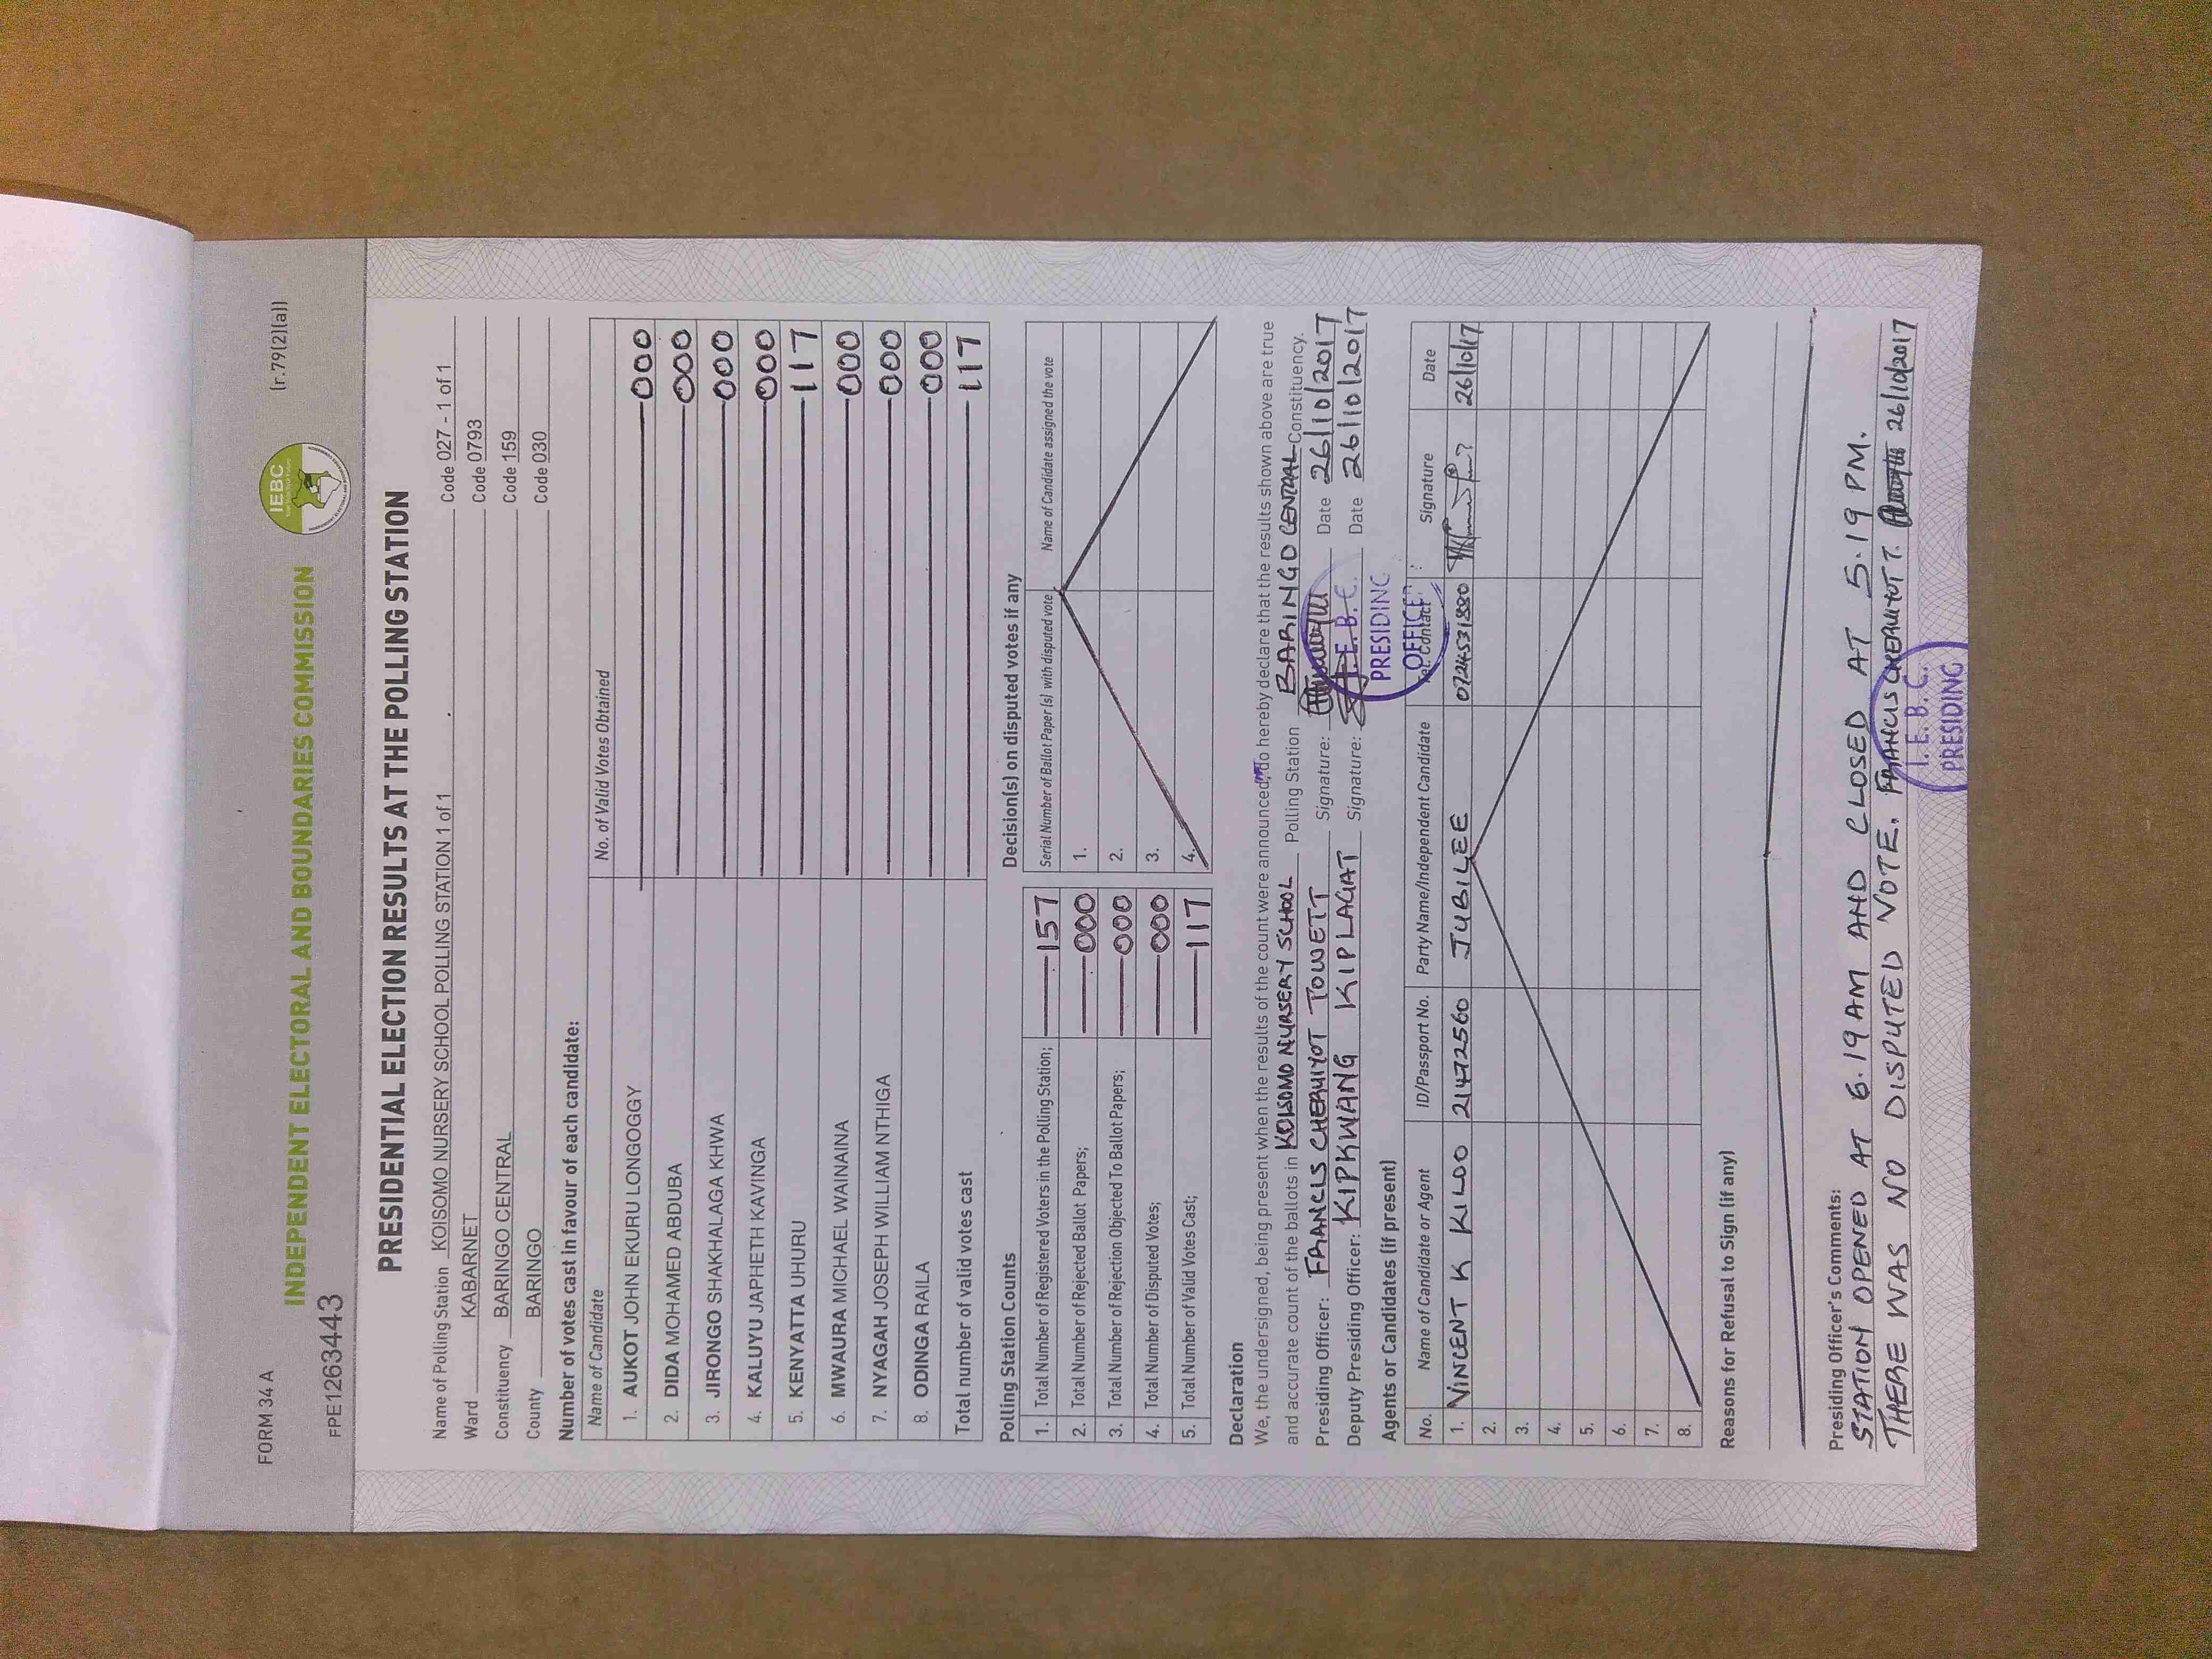 FORM 34 A
(r.79(2)(a))
INDEPENDENT ELECTORAL AND BOUNDARIES COMMISSION
IEBC
FPE1263443
PRESIDENTIAL ELECTION RESULTS AT THE POLLING STATION
Name of Polling Station KOISOMO NURSERY SCHOOL POLLING STATION 1 of 1 Code 027 - 1 of 1
Ward KABARNET Code 0793
Constituency BARINGO CENTRAL Code 159
County BARINGO Code 030
Number of votes cast in favour of each candidate:
Name of Candidate No. of Valid Votes Obtained
1. AUKOT JOHN EKURU LONGOGGY 000
2. DIDA MOHAMED ABDUBA 000
3. JIRONGO SHAKHALAGA KHWA 000
4. KALUYU JAPHETH KAVINGA 000
5. KENYATTA UHURU 117
6. MWAURA MICHAEL WAINAINA 000
7. NYAGAH JOSEPH WILLIAM NTHIGA 000
8. ODINGA RAILA 000
Total number of valid votes cast 117
Polling Station Counts
1. Total Number of Registered Voters in the Polling Station; 157
2. Total Number of Rejected Ballot Papers; 000
3. Total Number of Rejection Objected To Ballot Papers; 000
4. Total Number of Disputed Votes; 000
5. Total Number of Valid Votes Cast; 117
Decision(s) on disputed votes if any
Serial Number of Ballot Paper (s) with disputed vote Name of Candidate assigned the vote
1.
2.
3.
4.
Declaration
We, the undersigned, being present when the results of the count were announced, do hereby declare that the results shown above are true
and accurate count of the ballots in KOISOMO NURSERY SCHOOL Polling Station BARINGO CENTRAL Constituency.
Presiding Officer: FRANCIS CHERUIYOT TOWETT Signature: Date 26/10/2017
Deputy Presiding Officer: KIPKWANG KIPLAGAT Signature: Date 26/10/2017
I.E.B.C.
PRESIDING
OFFICER
Agents or Candidates (if present)
No. Name of Candidate or Agent ID/Passport No. Party Name/Independent Candidate Tel. Contact Signature Date
1. VINCENT K KILDO 21472560 JUBILEE 0724531880 26/10/17
2.
3.
4.
5.
6.
7.
8.
Reasons for Refusal to Sign (if any)
Presiding Officer's Comments:
STATION OPENED AT 6.19 AM AND CLOSED AT 5.19 PM.
THERE WAS NO DISPUTED VOTE. FRANCIS CHERUIYOT T. 26/10/2017
I.E.B.C.
PRESIDING